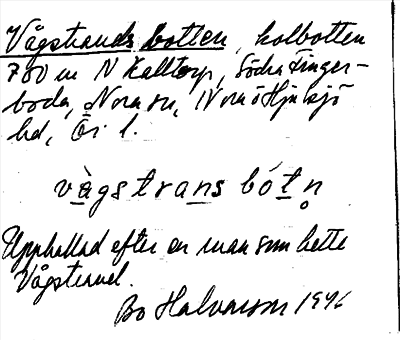 Vågstrands botten, kolbotten
700 m N Kalltorp, Södra Finger-
boda, Nora sn, Nora o Hjulsjö
hd, Ör l.
vàgstrans bótn̥
Uppkallad efter en man som hette
Vågstrand.
Bo Halvarson 1946